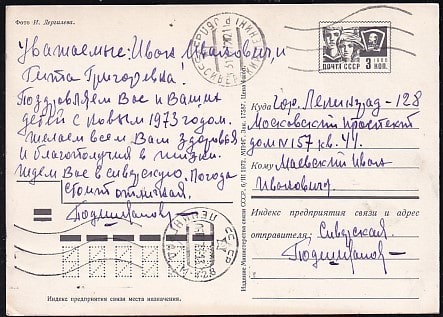 Фото И. Дергилева.
Уважаемые: Иван Иванович, и
Григоревна.
Поздравляем Вас и Ваших
детей с новым 1973 годом.
желаем всем Вам здоровья
и благополучия в жизни.
ждем Вас в сивускую. Погода
стоит отличная.
ПОЧТА СССР
3 КОП.
Куда гор. Ленинград-128
Московский проспект
дом N 157 кв. 44.
Кому Маевский Иван
Иванович.
Индекс предприятия связи и адрес
отправителя: Сивуская.
Издание Министерства связи СССР.
Индекс предприятия связи места назначения.